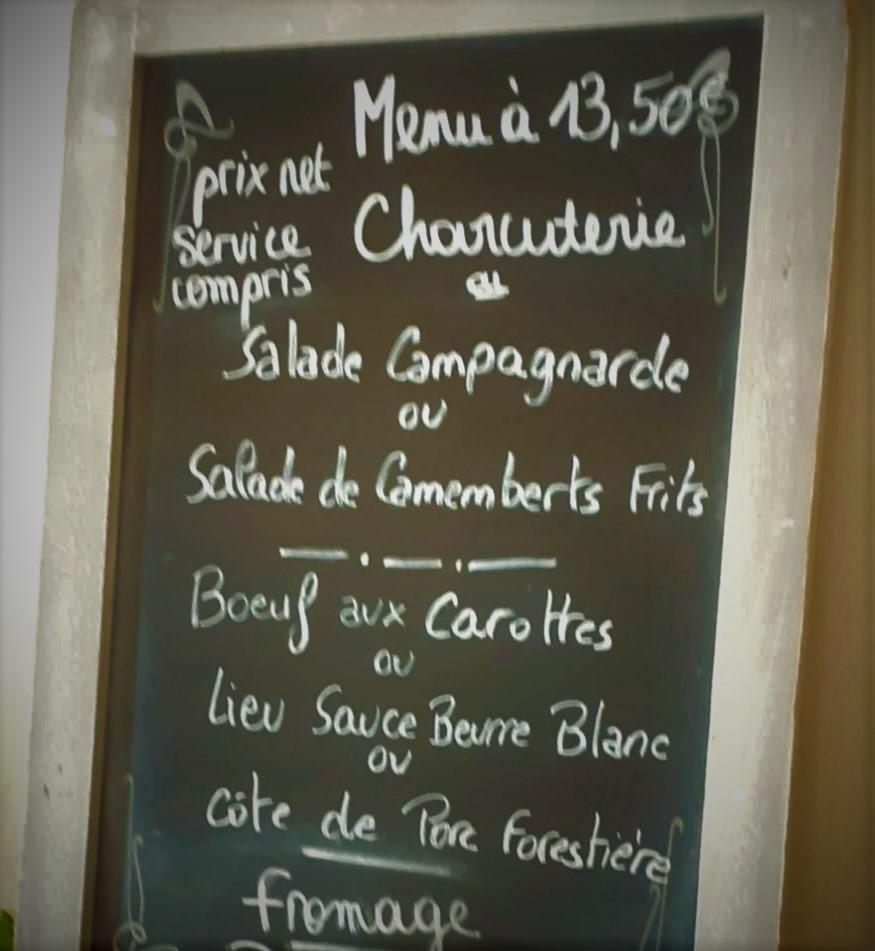 Menu à 13,50€
prix net
service
compris
Charcuterie
ou
Salade Campagnarde
ou
Salade de Camemberts Frits
Boeuf aux Carottes
ou
Lieu Sauce Beurre Blanc
ou
Côte de Porc Forestière
fromage